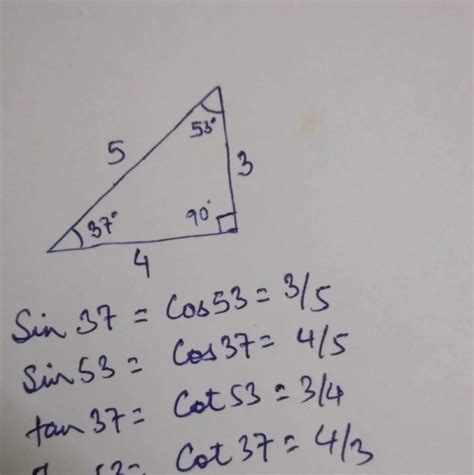 53°
5
3
37°
90°
4
Sin 37 = Cos 53 = 3/5
Sin 53 = Cos 37 = 4/5
tan 37 = Cot 53 = 3/4
53 = Cot 37 = 4/3